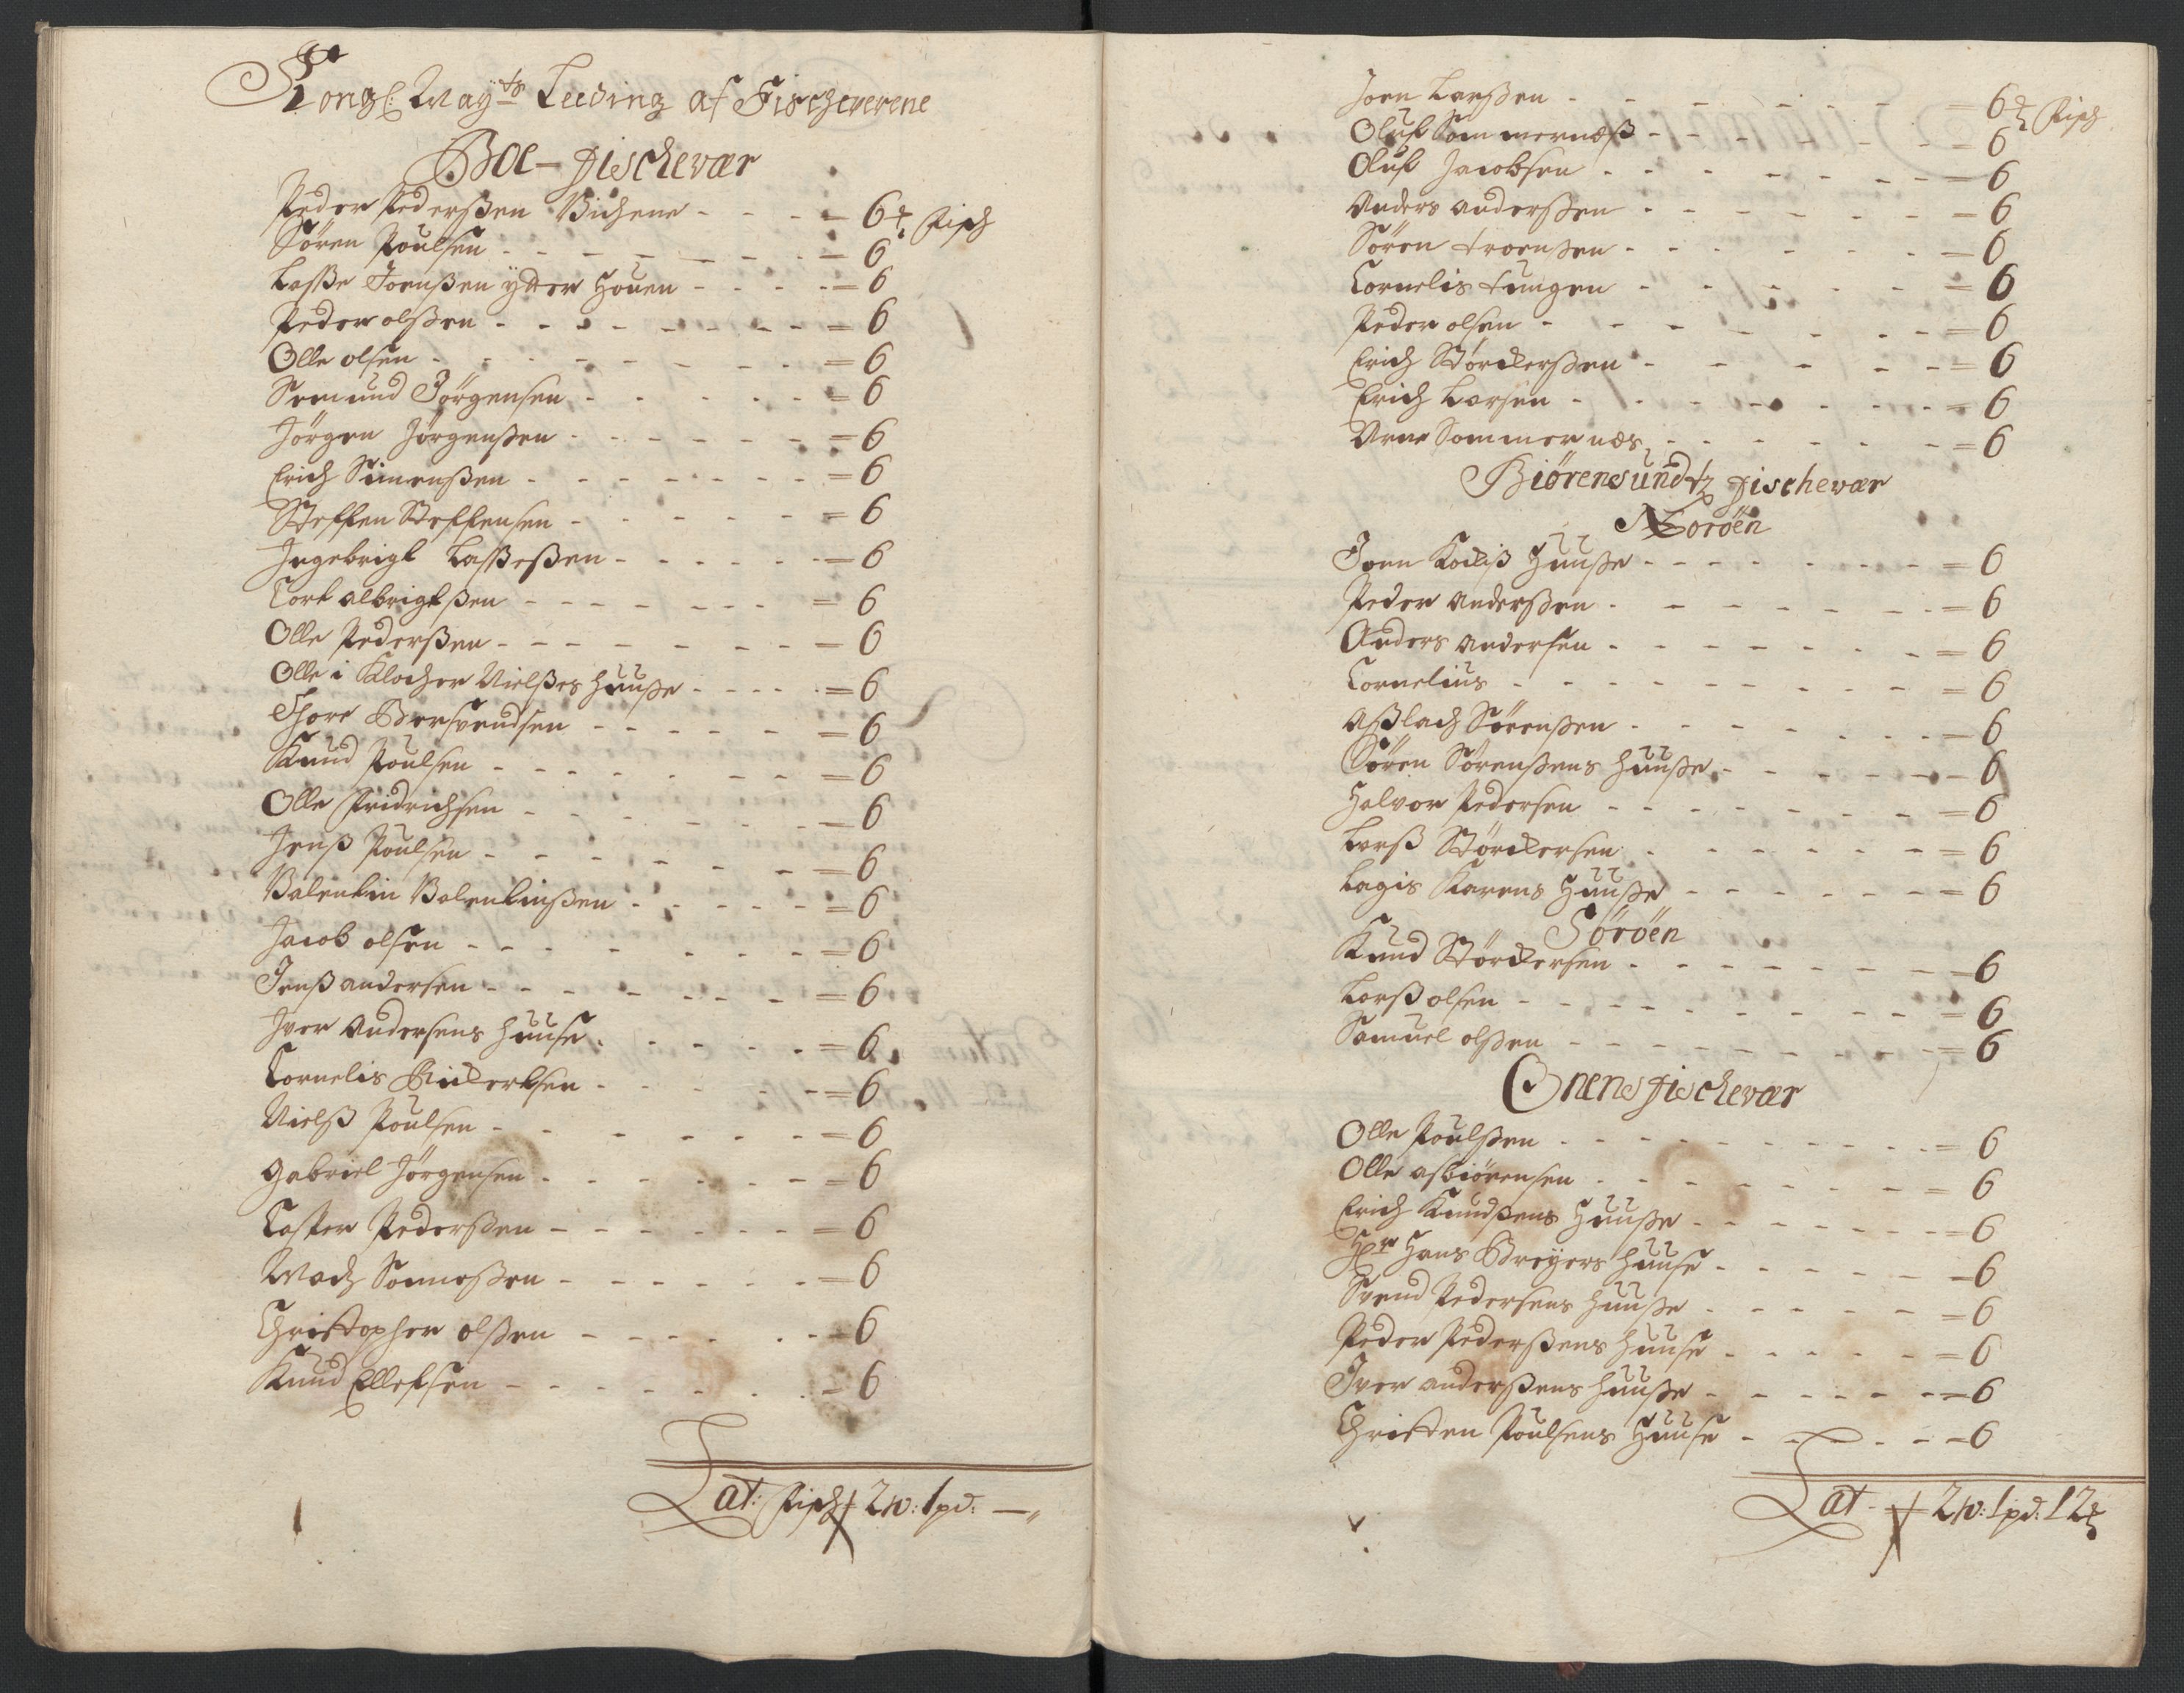 Kongl: May:ts Leeding af Fischeverene
Boe-fischevær
Peder Pederßen Bichene - - - - = 6 ℔ Fisch
Sören Poulsen - - - - - - - = 6
Lasße Joenßen ytter Houen - - - - = 6
Peder olßen - - - - - - - - = 6
Olle olsen - - - - - - - - = 6
Semund Jörgensen - - - - - = 6
Jörgen Jörgenßen - - - - - - = 6
Erich Simenßen - - - - - - - = 6
Steffen Steffensen - - - - - - = 6
Ingebrigt Lasßeßen - - - - - - = 6
Tort albrigtßen - - - - - - - = 6
Olle Pederßen - - - - - - - = 6
Olle i Klocher Nielßes huuße - - - - = 6
Thore Bersvendsen - - - - - = 6
Knud Poulsen - - - - - - - = 6
Olle Fridrichsen - - - - - - = 6
Jenß Poulsen - - - - - - - = 6
Valentin Valentinßen - - - - - = 6
Jacob olsen - - - - - - - = 6
Jenß andersen - - - - - - - = 6
Iver Andersens huuse - - - - - = 6
Cornelis Rickertsen - - - - - = 6
Nielß Poulsen - - - - - - - = 6
Gabriel Jörgensen - - - - - - = 6
Casper Pederßen - - - - - - = 6
Mads Sonneßen - - - - - - = 6
Christopher olßen - - - - - - 6
Knud Ellefsen - - - - - - - = 6
Lat: Fisch 2 w: 1 pd: —„
Joen Larßen - - - - - - - = 6 ℔ Fisch
Oluf Sommernæß - - - - - - - = 6
Oluf Jacobsen - - - - - - - = 6
Anders anderßen - - - - - - - = 6
Sören troenßen - - - - - - = 6
Cornelis tungen - - - - - - = 6
Peder olsen - - - - - - - = 6
Erich Störckerßen - - - - - = 6
Erich Larsen - - - - - - - = 6
Arne Sommernæs - - - - - - = 6
Biörensundtz fischevær
Noröen
Joen Kockiß Huuße - - - - - - - = 6
Peder Anderßen - - - - - - - = 6
Anders Andersen - - - - - - - = 6
Cornelius - - - - - - - - - = 6
Aßlach Sörenßen - - - - - - - = 6
Sören Sörenßens huuße - - - - - - 6
Halvor Pedersen - - - - - - - = 6
Larß Störckersen - - - - - - = 6
Lagis Karens Huuße - - - - - - = 6
Söröen
Knud Störckersen - - - - - - - = 6
Larß olsen - - - - - - - - - = 6
Samuel olßen - - - - - - - - = 6
Onens fischevær
Olle Poulßen - - - - - - - - = 6
Olle asbiörensen - - - - - - - = 6
Erich Knudßens Huuße - - - - - - = 6
Hr Hans Breyers huuse - - - - - = 6
Svend Pedersens huuße - - - - - = 6
Peder Pederßens huuse - - - - - = 6
Iver anderßens huuße - - - - - = 6
Christen Poulsens Huuse - - - - - = 6
Lat - 2 w: 1 pd: 12 ℔